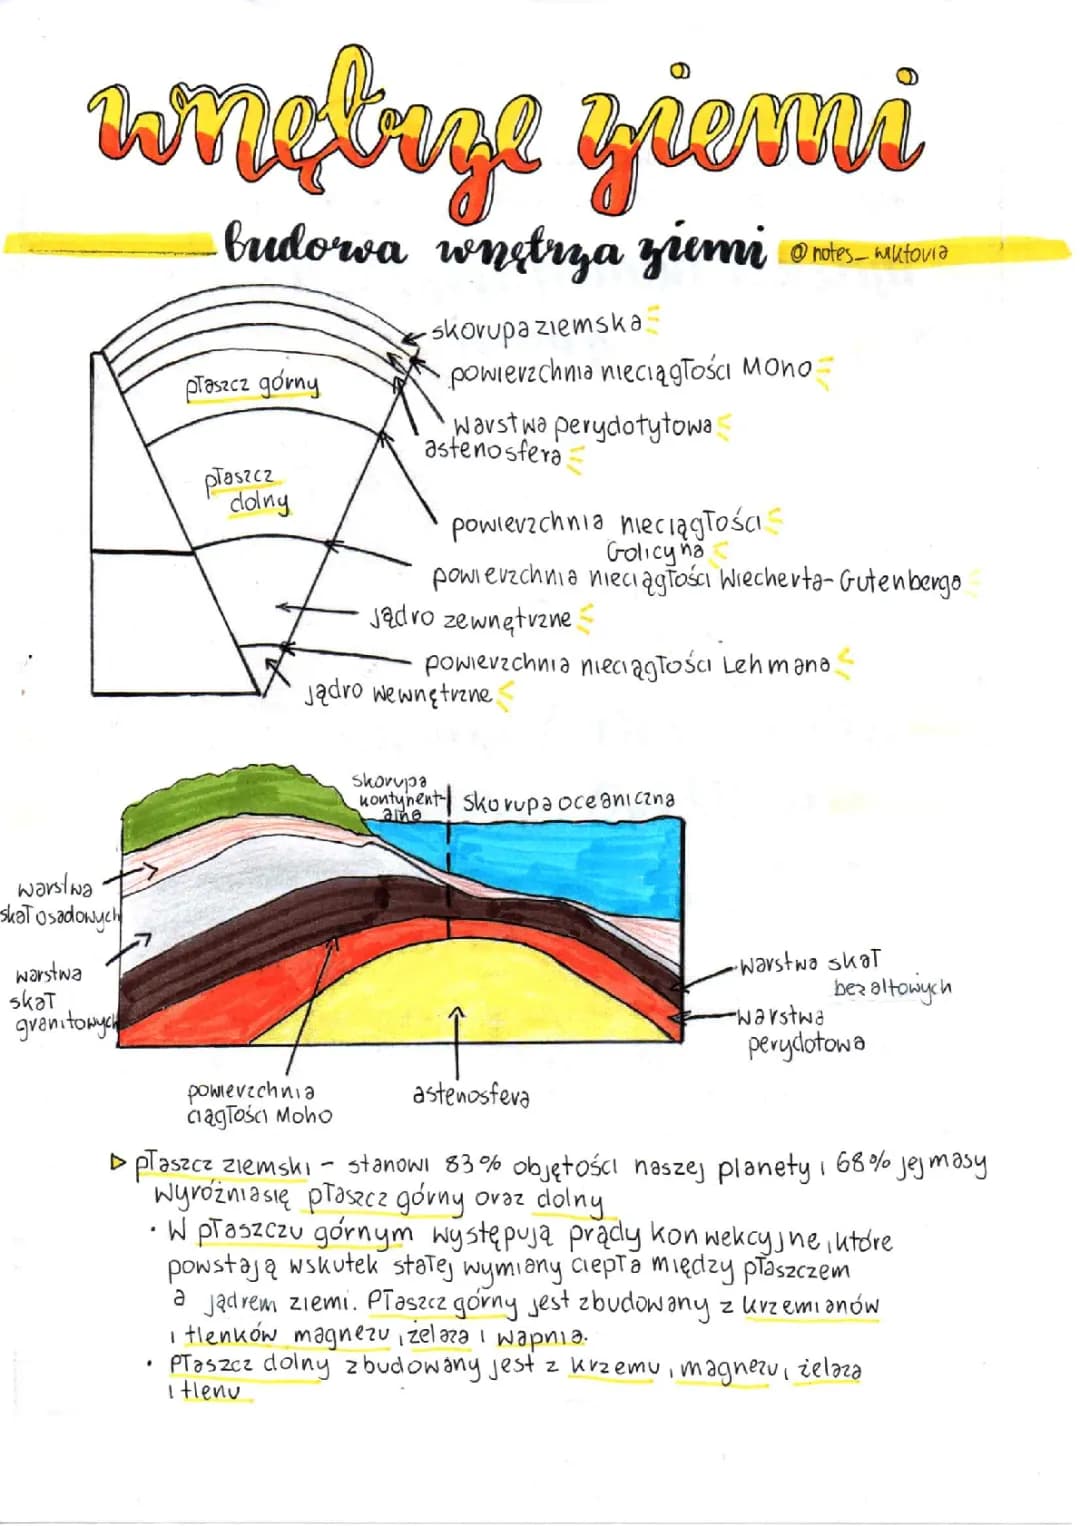 wnętrze ziemi
budowa wnętrza ziemi @notes_wiktoria
skorupa ziemska
powierzchnia nieciągłości Moho
płaszcz górny
warstwa perydotytowa
astenosfera
płaszcz
dolny
powierzchnia nieciągłości
Golicyna
powierzchnia nieciągłości Wiecherta-Gutenbergo
jądro zewnętrzne
powierzchnia nieciągłości Lehmana
jądro wewnętrzne
skorupa
kontynent-
alna
skorupa oceaniczna
warstwa
skał osadowych
warstwa
skał
granitowych
warstwa skał
bezaltowych
warstwa
perydotowa
powierzchnia
ciągłości Moho
astenosfera
płaszcz ziemski - stanowi 83% objętości naszej planety i 68% jej masy
Wyróżnia się płaszcz górny oraz dolny
· W płaszczu górnym występują prądy konwekcyjne, które
powstają wskutek stałej wymiany ciepła między płaszczem
a jądrem ziemi. Płaszcz górny jest zbudowany z krzemianów
i tlenków magnezu, żelaza i wapnia.
· Płaszcz dolny zbudowany jest z krzemu, magnezu, żelaza
i tlenu